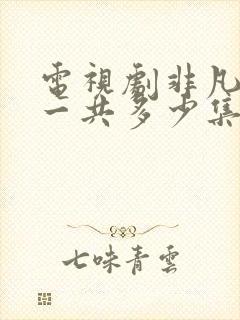 電視劇非凡
一共多少集
七味青雲